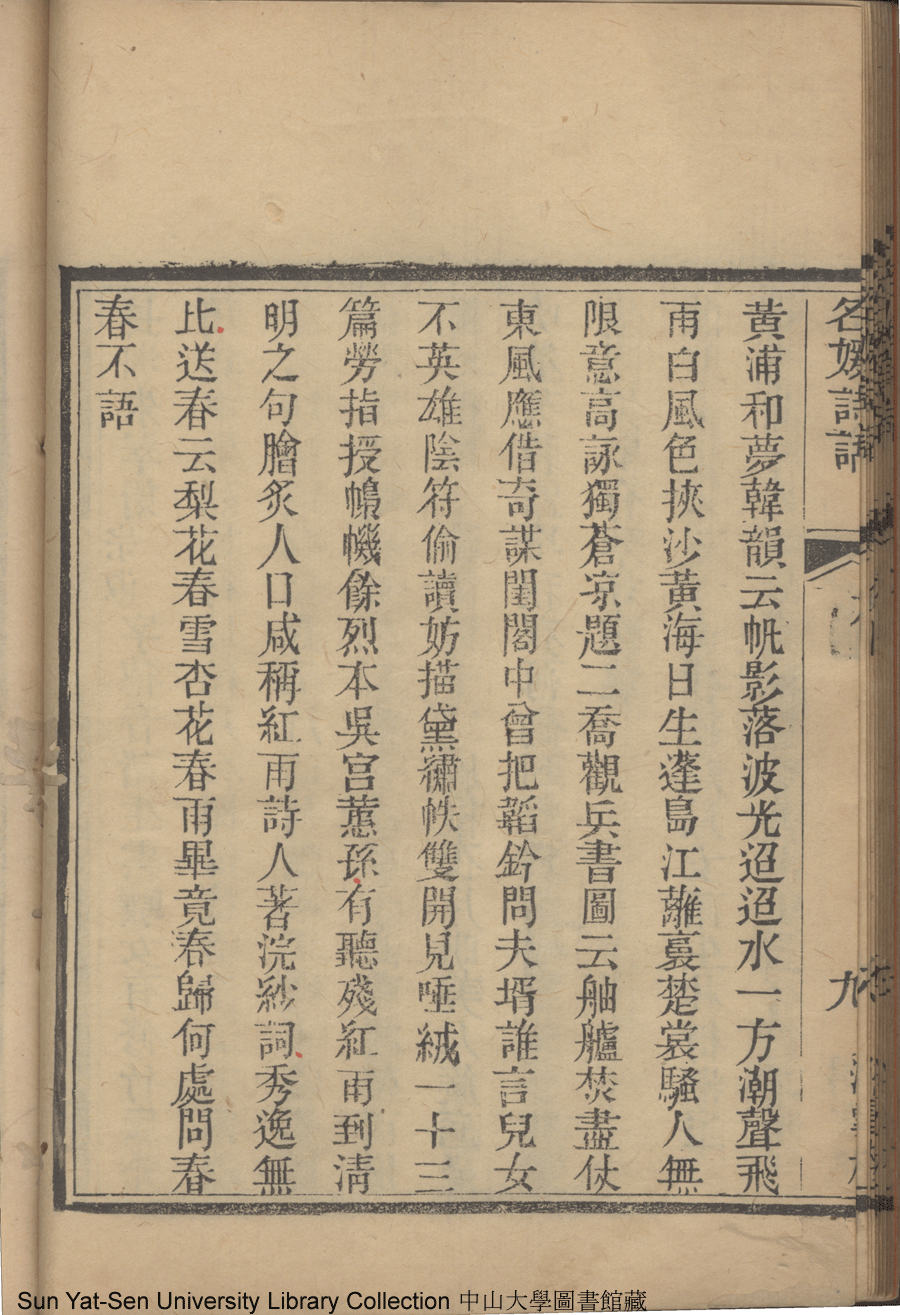 名媛詩話
九
黃浦和夢韓韻云帆影落波光迢迢水一方潮聲飛
雨白風色挾沙黃海日生蓬島江蘺裛楚裳騷人無
限意高詠獨蒼凉題二喬觀兵書圖云舳艫焚盡仗
東風應借奇謀閨閣中曾把韜鈐問夫壻誰言兒女
不英雄陰符偷讀妨描黛繡帙雙開見唾絨一十三
篇勞指授幃幾餘烈本吳宮蕙孫有聽殘紅雨到淸
明之句膾炙人口咸稱紅雨詩人著浣紗詞秀逸無
比送春云梨花春雪杏花春雨畢竟春歸何處問春
春不語
Sun Yat-Sen University Library Collection 中山大學圖書館藏